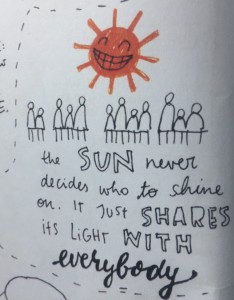 the SUN never
decides who to shine
on. IT Just SHARES
its LiGHT WITH
everybody